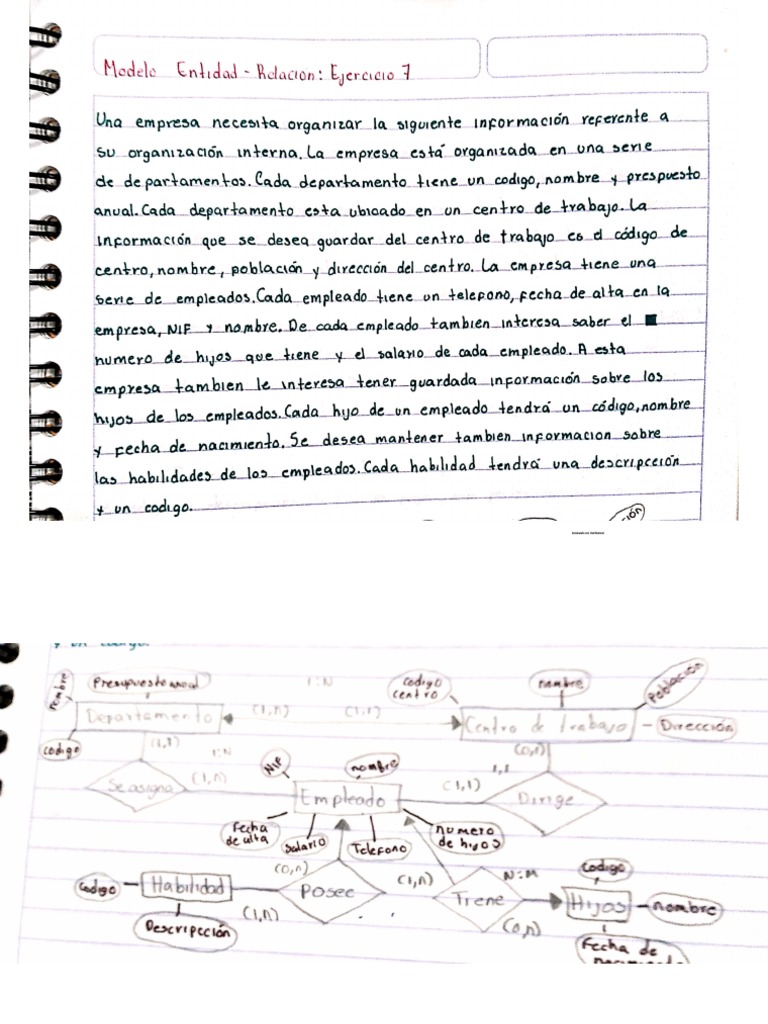 Modelo Entidad - Relacion: Ejercicio 7
Una empresa necesita organizar la siguiente información referente a
su organización interna. La empresa está organizada en una serie
de departamentos. Cada departamento tiene un codigo, nombre y prespuesto
anual. Cada departamento esta ubicado en un centro de trabajo. La
información que se desea guardar del centro de trabajo es el código de
centro, nombre, población y dirección del centro. La empresa tiene una
serie de empleados. Cada empleado tiene un telefono, fecha de alta en la
empresa, NIF y nombre. De cada empleado tambien interesa saber el
numero de hijos que tiene y el salario de cada empleado. A esta
empresa tambien le interesa tener guardada información sobre los
hijos de los empleados. Cada hijo de un empleado tendrá un código, nombre
y fecha de nacimiento. Se desea mantener tambien informacion sobre
las habilidades de los empleados. Cada habilidad tendrá una descripceión
y un codigo.
ión
y un codigo.
nombre
Presupuesto anual
1:N
codigo
centro
nombre
Población
Departamento
(1,n)
(1,1)
Centro de trabajo
Dirección
codigo
(1,1)
1:N
(0,n)
Se asigna
(1,n)
NIF
nombre
1,1
(1,1)
Empleado
Dirige
Fecha
de alta
Salario
Telefono
numero
de hijos
(0,n)
N:M
Codigo
Codigo
Habilidad
Posee
(1,n)
Tiene
Hijos
nombre
(1,n)
(0,n)
Descripceión
Fecha de